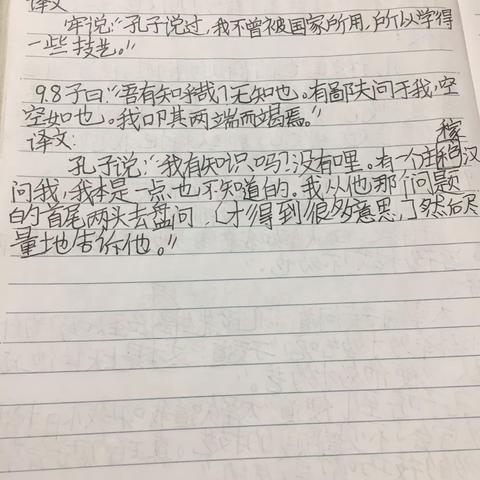 译文
牢说:"孔子说过,我不曾被国家所用,所以学得
一些技艺。"
9.8子曰:"吾有知乎哉?无知也。有鄙夫问于我,空
空如也。我叩其两端而竭焉。"
译文:
孔子说:"我有知识吗?没有哩。有一个庄稼汉
问我,我本是一点也不知道的。我从他那个问题
的首尾两头去盘问,〔才得到很多意思,〕然后尽
量地告诉他。"